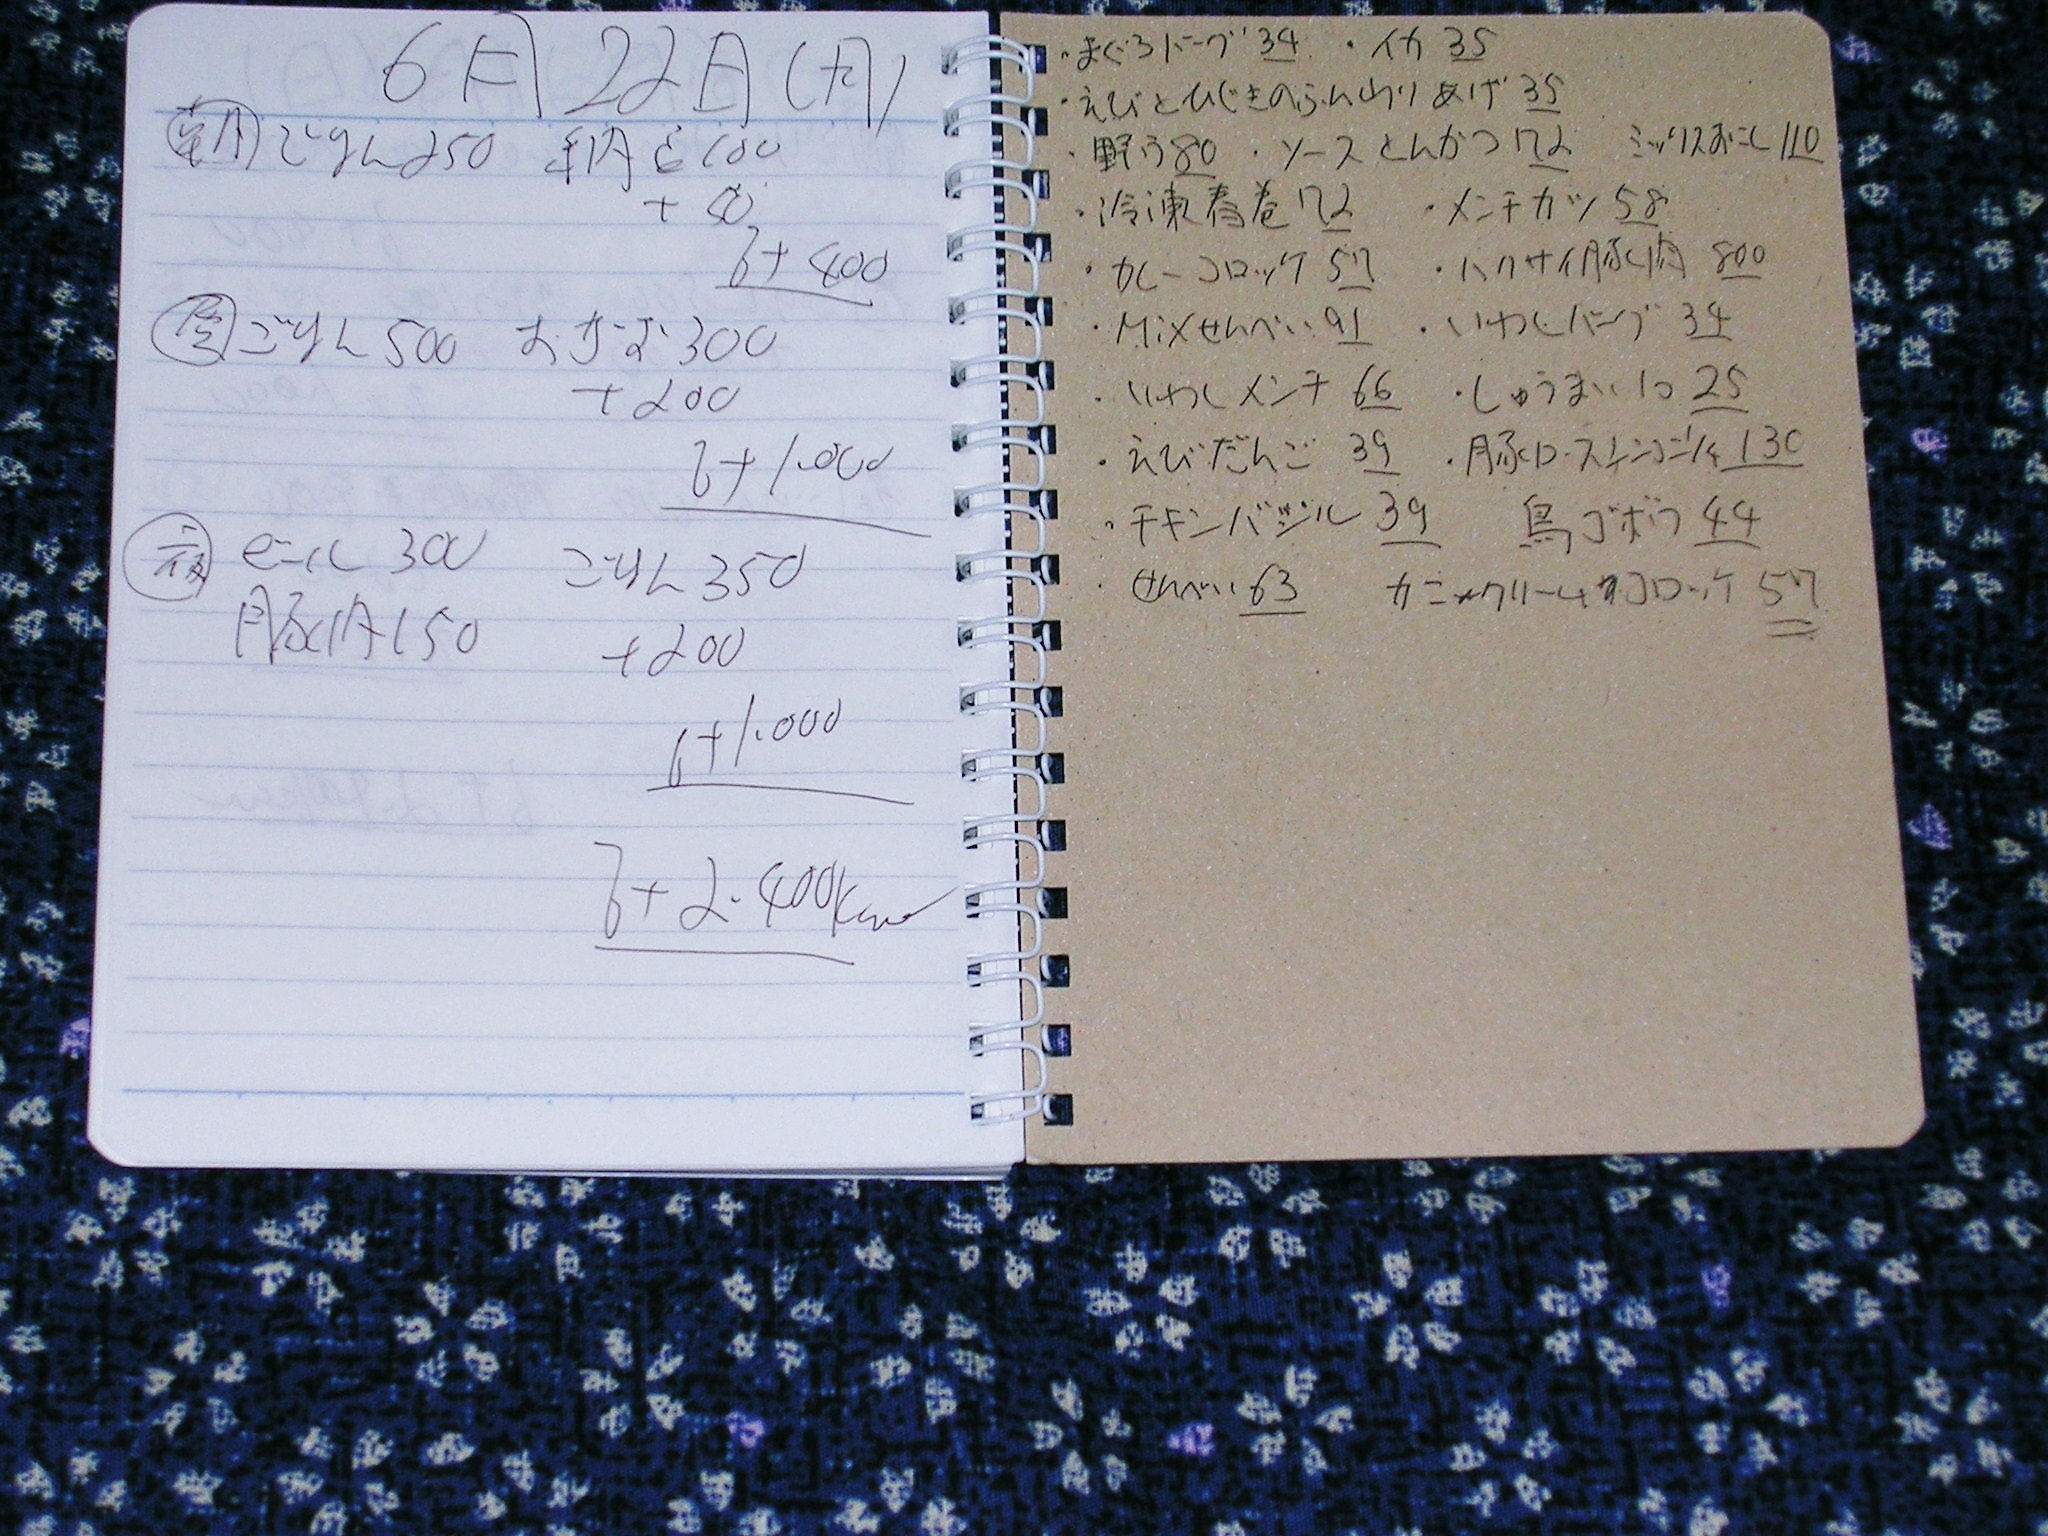 6月22日(月)
朝 ごはん250 納豆100
+50
計400
昼 ごはん500 おかず300
+200
計1.000
夜 ビール300 ごはん350
豚肉150 +200
計1.000
計2.400kcal
・まぐろバーグ34 ・イカ35
・えびとひじきのふんわりあげ35
・野う80 ・ソースとんかつ72 ミックスおこし110
・冷凍春巻72 ・メンチカツ58
・カレーコロッケ57 ・ハクサイ豚肉800
・Mixせんべい91 ・いわしバーグ34
・いわしメンチ66 ・しゅうまい1つ25
・えびだんご39 ・豚ロース 130
・チキンバジル39 鳥ゴボウ44
・せんべい63 カニクリームコロッケ57